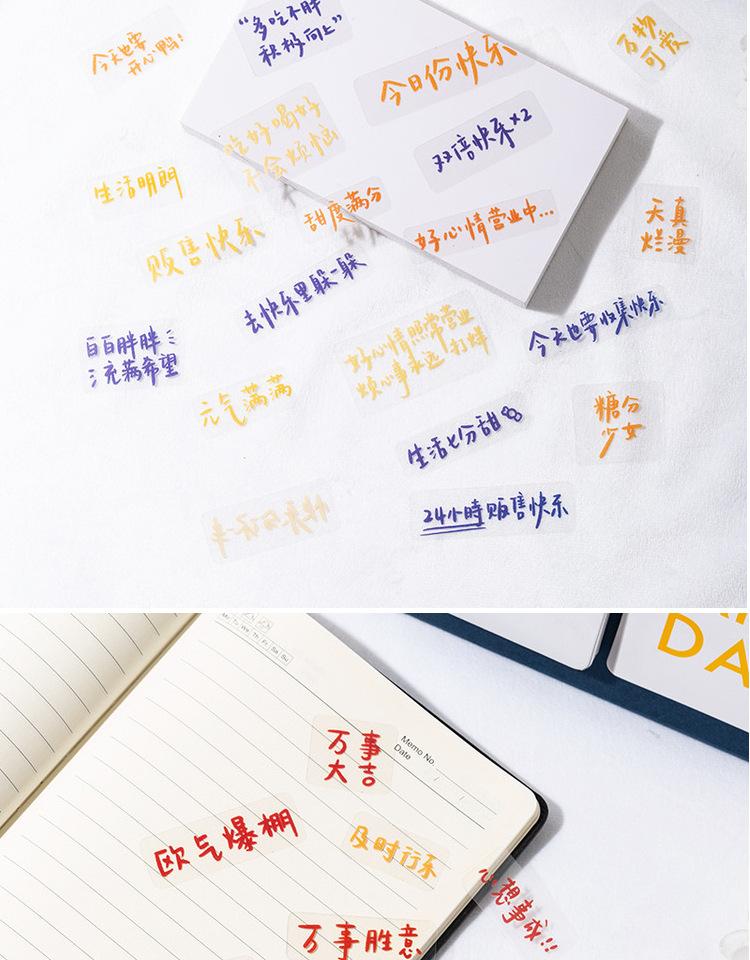 今天也要
开心鸭！
“多吃不胖
积极向上”
今日份快乐
万物
可爱
吃好喝好
不会烦恼
双倍快乐×2
生活明朗
甜度满分
好心情营业中...
天真
烂漫
贩售快乐
去快乐里躲一躲
白白胖胖
充满希望
好心情照常营业
烦心事永远打烊
今天也要收集快乐
元气满满
生活七分甜
糖分
少女
24小時贩售快乐
Mo Tu We Th Fr Sa Su
Memo No.
Date
DA
万事
大吉
欧气爆棚
及时行乐
心想事成!!
万事胜意